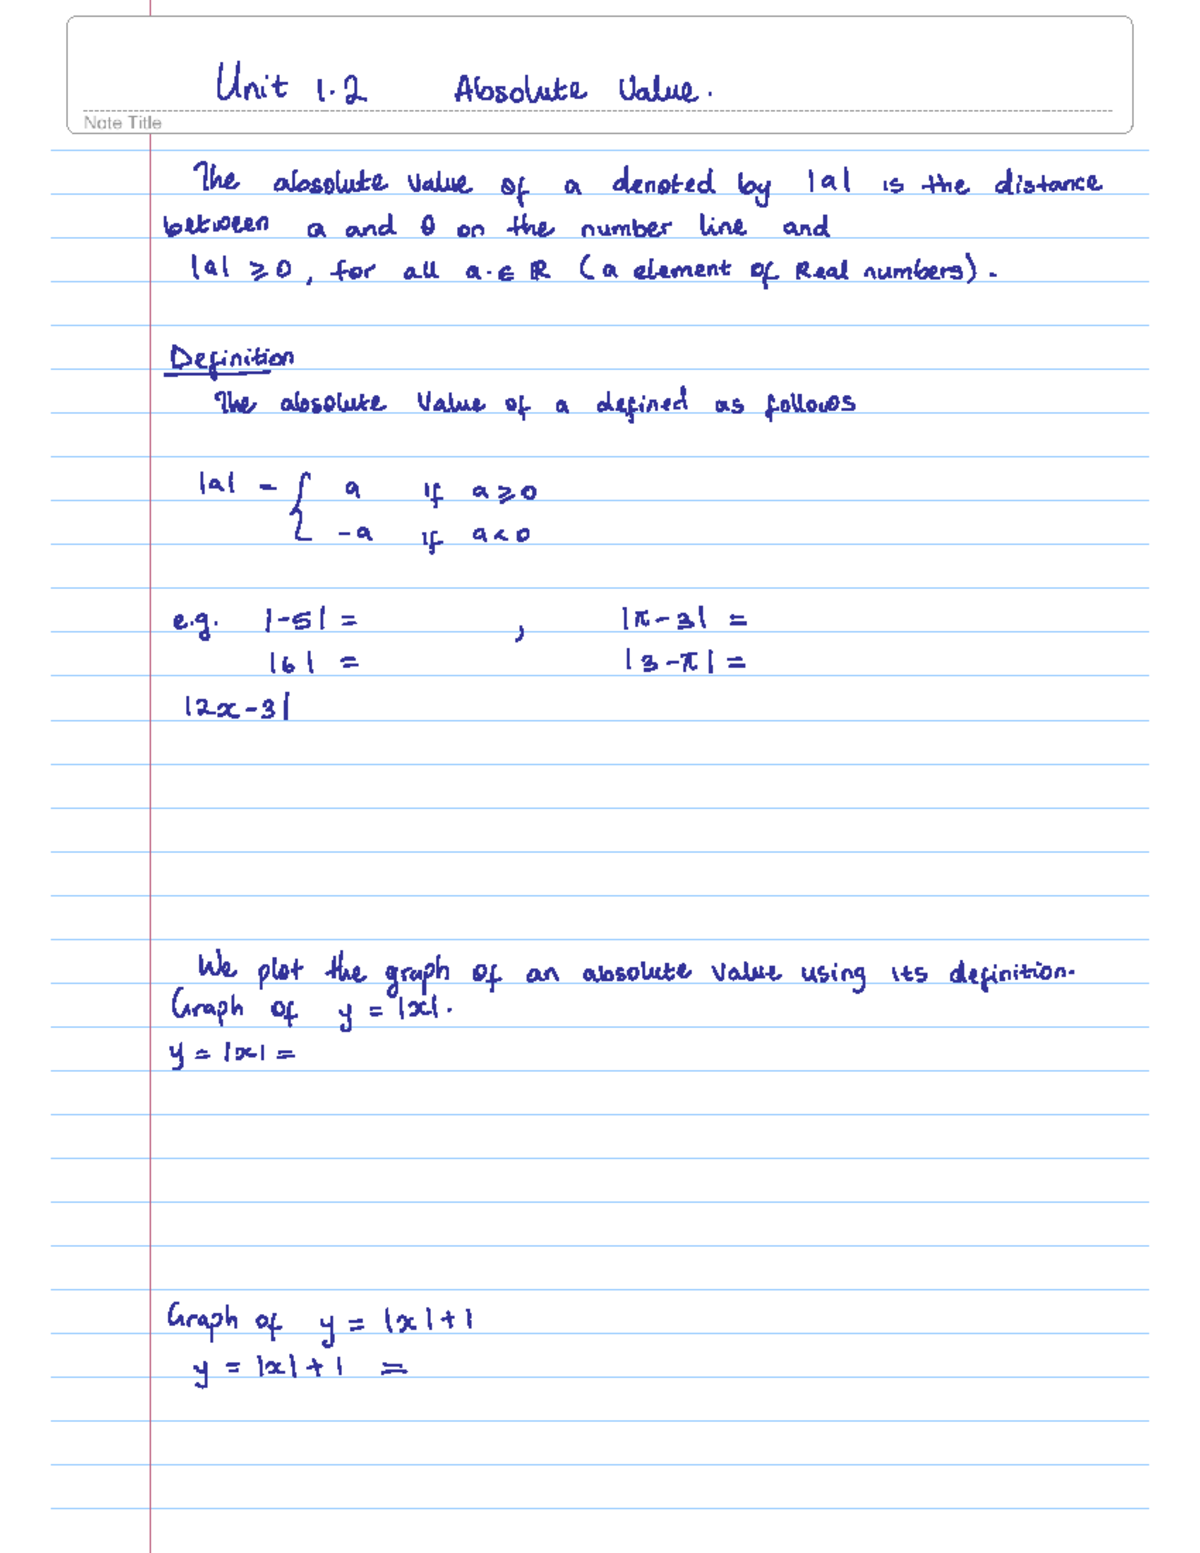 Unit 1.2 Absolute Value.
Note Title
The absolute value of a denoted by |a| is the distance
between a and 0 on the number line and
|a| ⩾ 0, for all a ∈ ℝ (a element of Real numbers).
Definition
The absolute value of a defined as follows
|a| = { a if a ⩾ 0
-a if a < 0
e.g. |-5| = , |π - 3| =
|6| = |3 - π| =
|2x - 3|
We plot the graph of an absolute value using its definition.
Graph of y = |x|.
y = |x| =
Graph of y = |x| + 1
y = |x| + 1 =